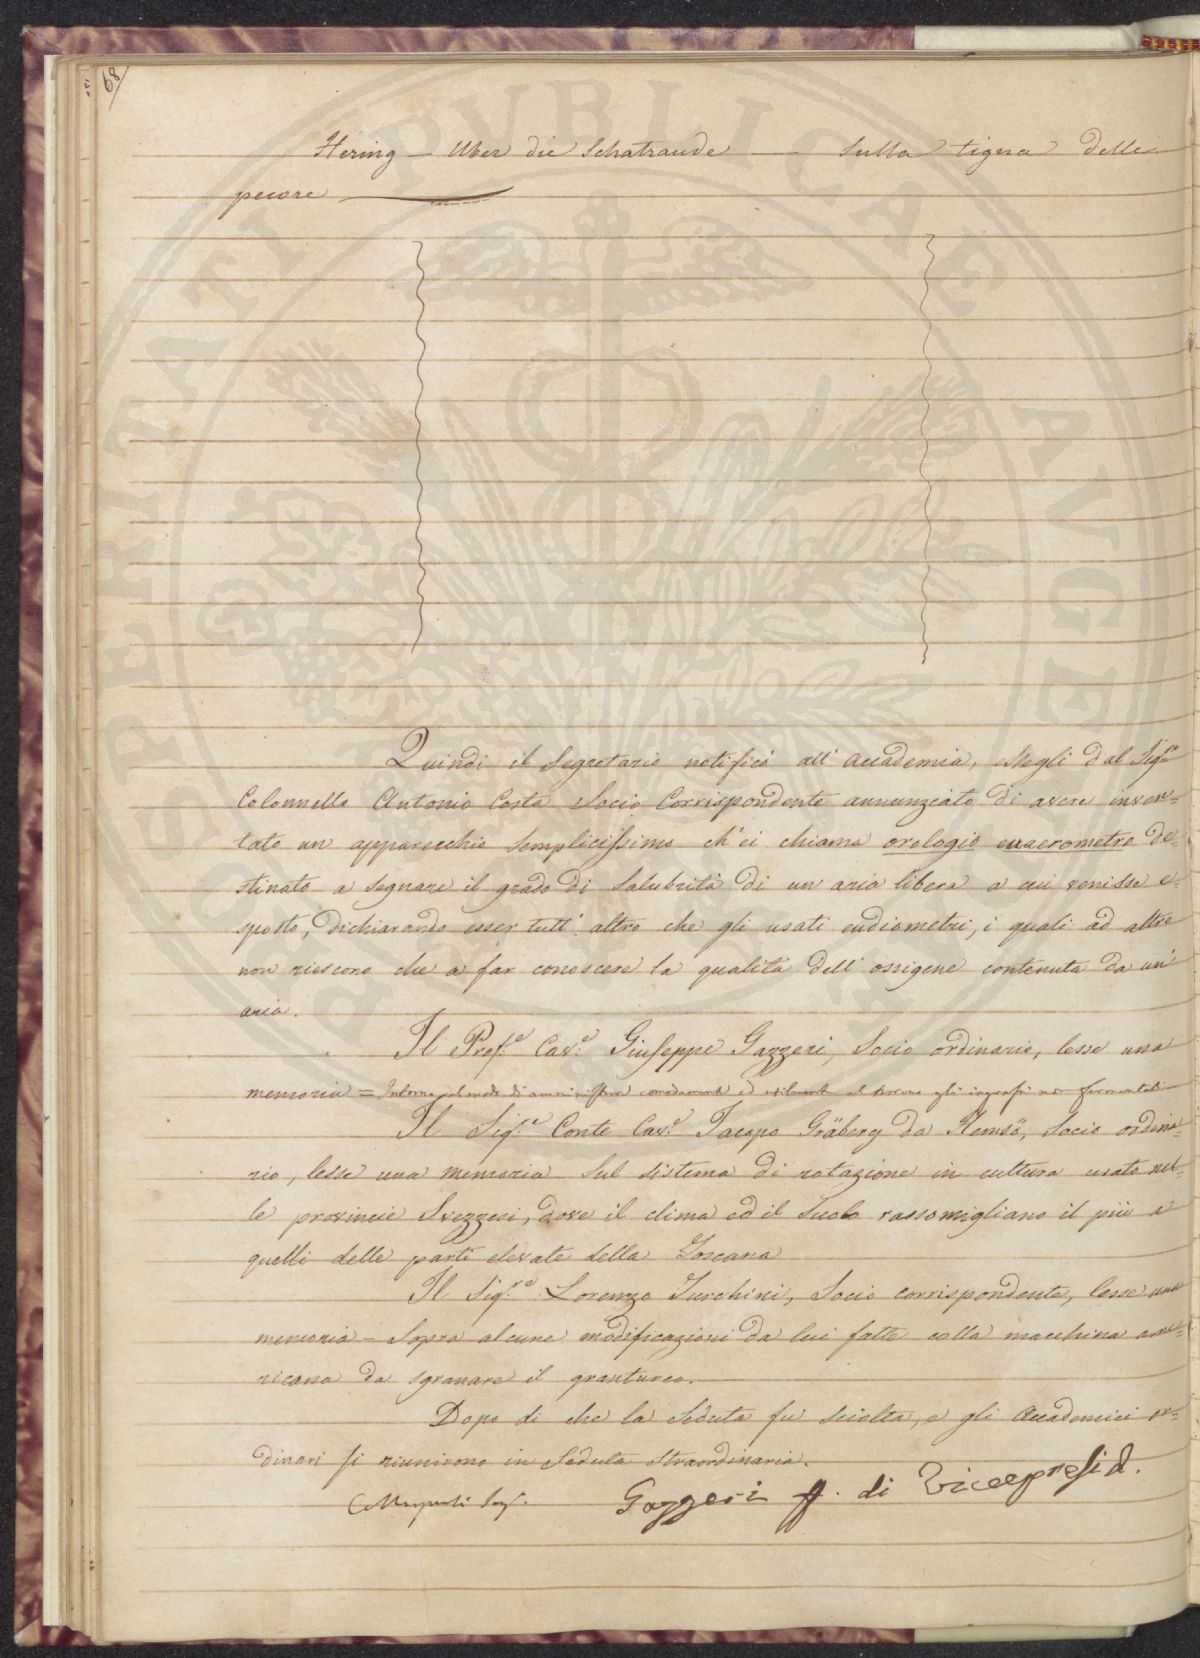 68
Hering — Uber die Schafraude — Sulla tigna delle
pecore
Quindi il Segretario notificò all' Accademia, essergli dal Sig.re
Colonnello Antonio Costa Socio Corrispondente annunziato di avere inven-
tato un apparecchio semplicissimo ch' ei chiama orologio euaerometro de-
stinato a segnare il grado di salubrità di un' aria libera a cui venisse e-
sposto, dichiarando esser tutt' altro che gli usati eudiometri, i quali ad altro
non riescono che a far conoscere la qualità dell' ossigene contenuta da un'
aria.
Il Prof.e Cav.e Giuseppe Gazzeri, Socio ordinario, lesse una
memoria = Intorno al modo di amministrare comodamente ed utilmente al terreno gli ingrassi non fermentati
Il Sig.re Conte Cav.e Jacopo Gräberg da Hemsö, Socio ordina-
rio, lesse una memoria sul sistema di rotazione in cultura usato nel-
le provincie Svezzesi, dove il clima ed il suolo rassomigliano il più a
quelli delle parti elevate della Toscana
Il Sig.re Lorenzo Turchini, Socio corrispondente, lesse una
memoria — Sopra alcune modificazioni da lui fatte colla macchina ame-
ricana da sgranare il granturco.
Dopo di che la Seduta fu sciolta, e gli Accademici or-
dinari si riunirono in Seduta straordinaria.
Gazzeri ff. di Vicepresid.